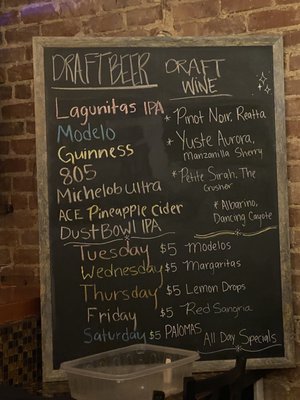 DRAFT BEER
Lagunitas IPA
Modelo
Guinness
805
Michelob Ultra
ACE Pineapple Cider
DUST BOWL IPA
DRAFT
WINE
* Pinot Noir, Reatta
* Yuste Aurora,
Manzanilla Sherry
* Petite Sirah, The
Crusher
* Albarino,
Dancing Coyote
Tuesday $5 Modelos
Wednesday $5 Margaritas
Thursday $5 Lemon Drops
Friday $5 Red Sangria
Saturday $5 PALOMAS
All Day Specials